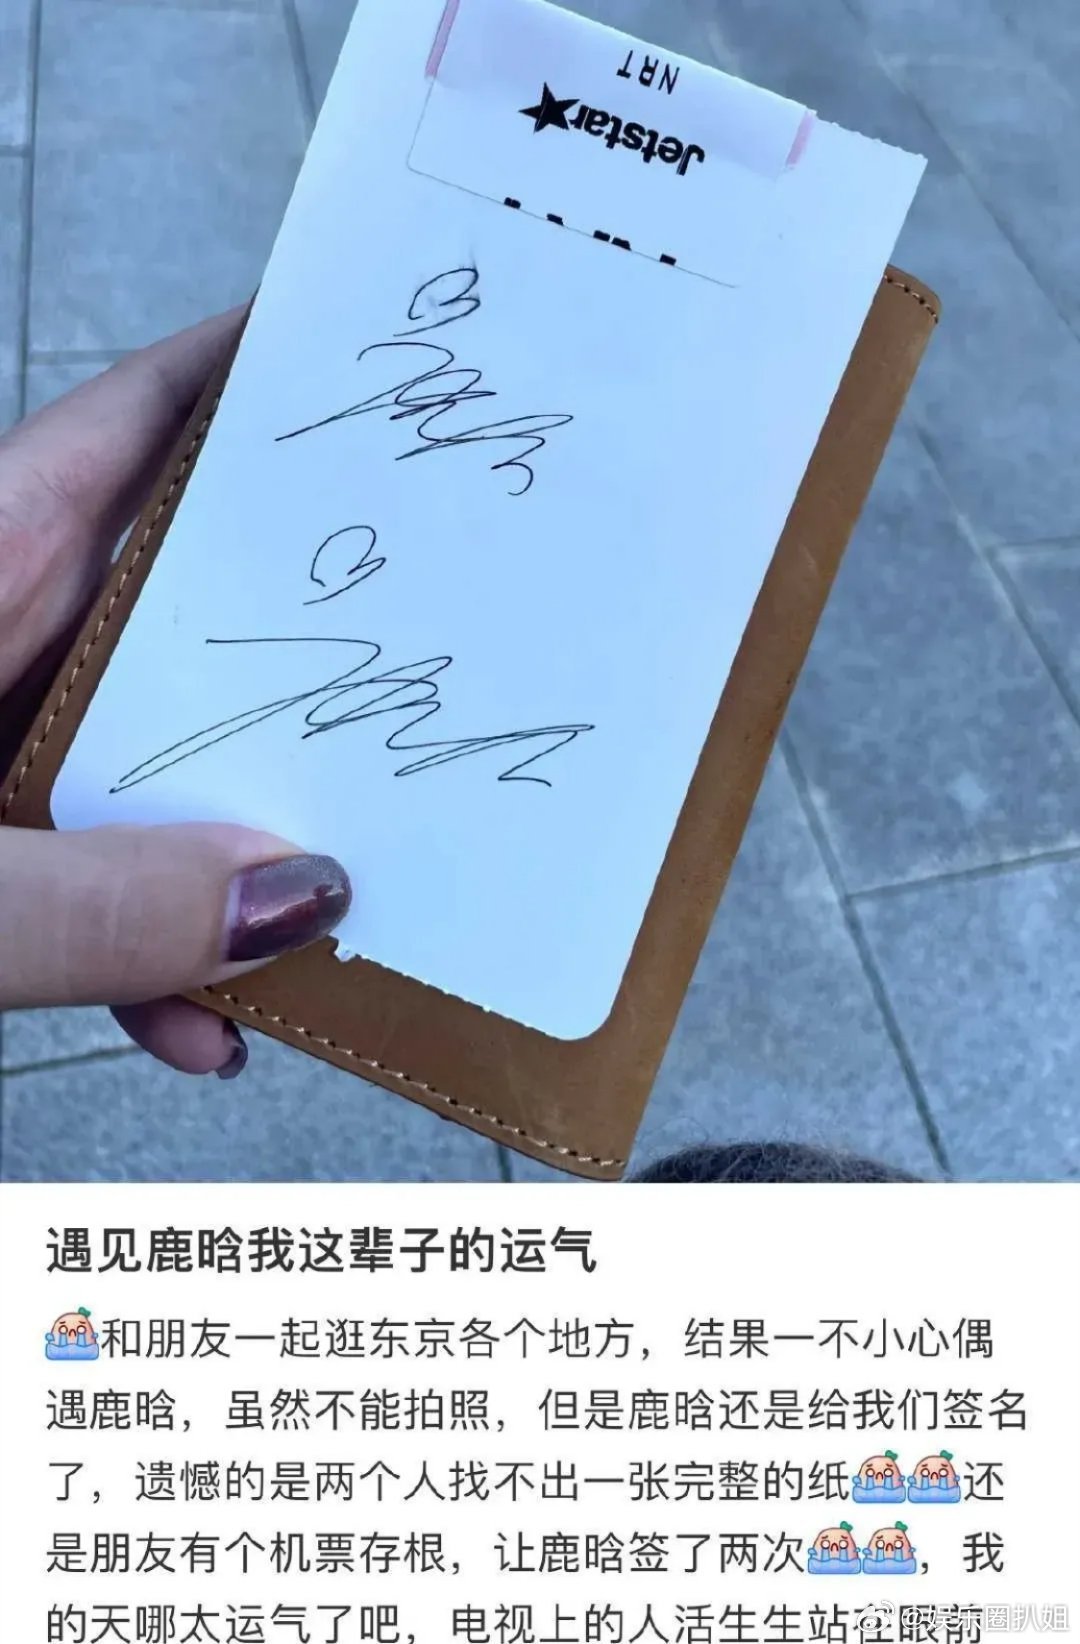 NRT
Jetstar
遇见鹿晗我这辈子的运气
😭和朋友一起逛东京各个地方，结果一不小心偶
遇鹿晗，虽然不能拍照，但是鹿晗还是给我们签名
了，遗憾的是两个人找不出一张完整的纸😭😭还
是朋友有个机票存根，让鹿晗签了两次😭😭，我
的天哪太运气了吧，电视上的人活生生站在
@娱乐圈扒姐